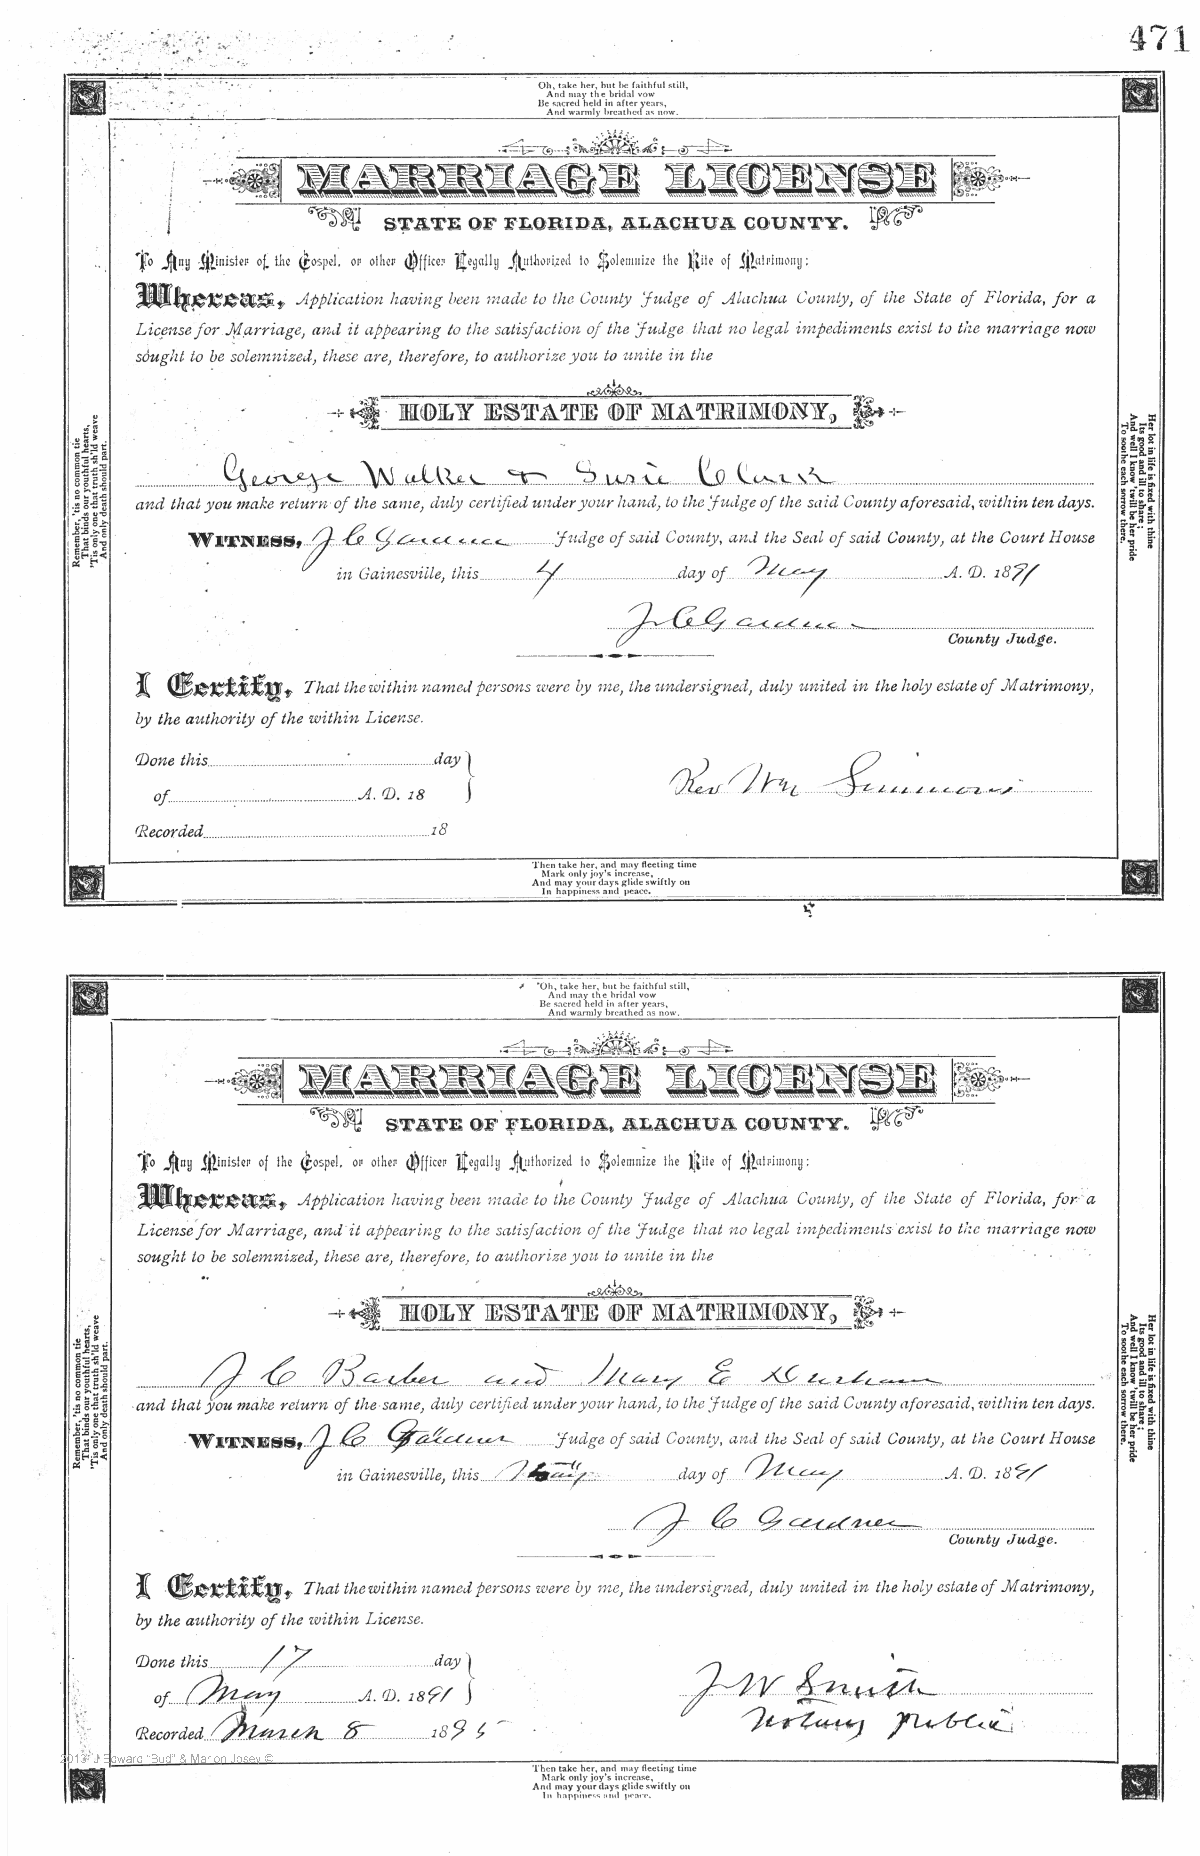 471
Oh, take her, but be faithful still,
And may the bridal vow
Be sacred held in after years,
And warmly breathed as now.
MARRIAGE LICENSE
STATE OF FLORIDA, ALACHUA COUNTY.
To Any Minister of the Gospel, or other Officer Legally Authorized to Solemnize the Rite of Matrimony:
Whereas, Application having been made to the County Judge of Alachua County, of the State of Florida, for a
License for Marriage, and it appearing to the satisfaction of the Judge that no legal impediments exist to the marriage now
sought to be solemnized, these are, therefore, to authorize you to unite in the
HOLY ESTATE OF MATRIMONY,
George Walker & Susie Clark
and that you make return of the same, duly certified under your hand, to the Judge of the said County aforesaid, within ten days.
WITNESS, J C Gardner Judge of said County, and the Seal of said County, at the Court House
in Gainesville, this 4 day of May A. D. 1891
J C Gardner
County Judge.
I Certify, That the within named persons were by me, the undersigned, duly united in the holy estate of Matrimony,
by the authority of the within License.
Done this day
of A. D. 18
Rev Wm Simmons
Recorded 18
Remember, 'tis no common tie
That binds our youthful hearts,
'Tis only one that truth sh'ld weave
And only death should part.
Her lot in life is fixed with thine
Its good and ill to share;
And well I know 'twill be her pride
To soothe each sorrow there.
Then take her, and may fleeting time
Mark only joy's increase,
And may your days glide swiftly on
In happiness and peace.
"Oh, take her, but be faithful still,
And may the bridal vow
Be sacred held in after years,
And warmly breathed as now.
MARRIAGE LICENSE
STATE OF FLORIDA, ALACHUA COUNTY.
To Any Minister of the Gospel, or other Officer Legally Authorized to Solemnize the Rite of Matrimony:
Whereas, Application having been made to the County Judge of Alachua County, of the State of Florida, for a
License for Marriage, and it appearing to the satisfaction of the Judge that no legal impediments exist to the marriage now
sought to be solemnized, these are, therefore, to authorize you to unite in the
HOLY ESTATE OF MATRIMONY,
J C Barber and Mary E Durham
and that you make return of the same, duly certified under your hand, to the Judge of the said County aforesaid, within ten days.
WITNESS, J C Gardner Judge of said County, and the Seal of said County, at the Court House
in Gainesville, this day of May A. D. 1891
J C Gardner
County Judge.
I Certify, That the within named persons were by me, the undersigned, duly united in the holy estate of Matrimony,
by the authority of the within License.
Done this 17 day
of May A. D. 1891
J W Smith
Notary Public
Recorded March 8 1895
2013 J Edward "Bud" & Marion Josey ©
Remember, 'tis no common tie
That binds our youthful hearts,
'Tis only one that truth sh'ld weave
And only death should part.
Her lot in life is fixed with thine
Its good and ill to share;
And well I know 'twill be her pride
To soothe each sorrow there.
Then take her, and may fleeting time
Mark only joy's increase,
And may your days glide swiftly on
In happiness and peace.